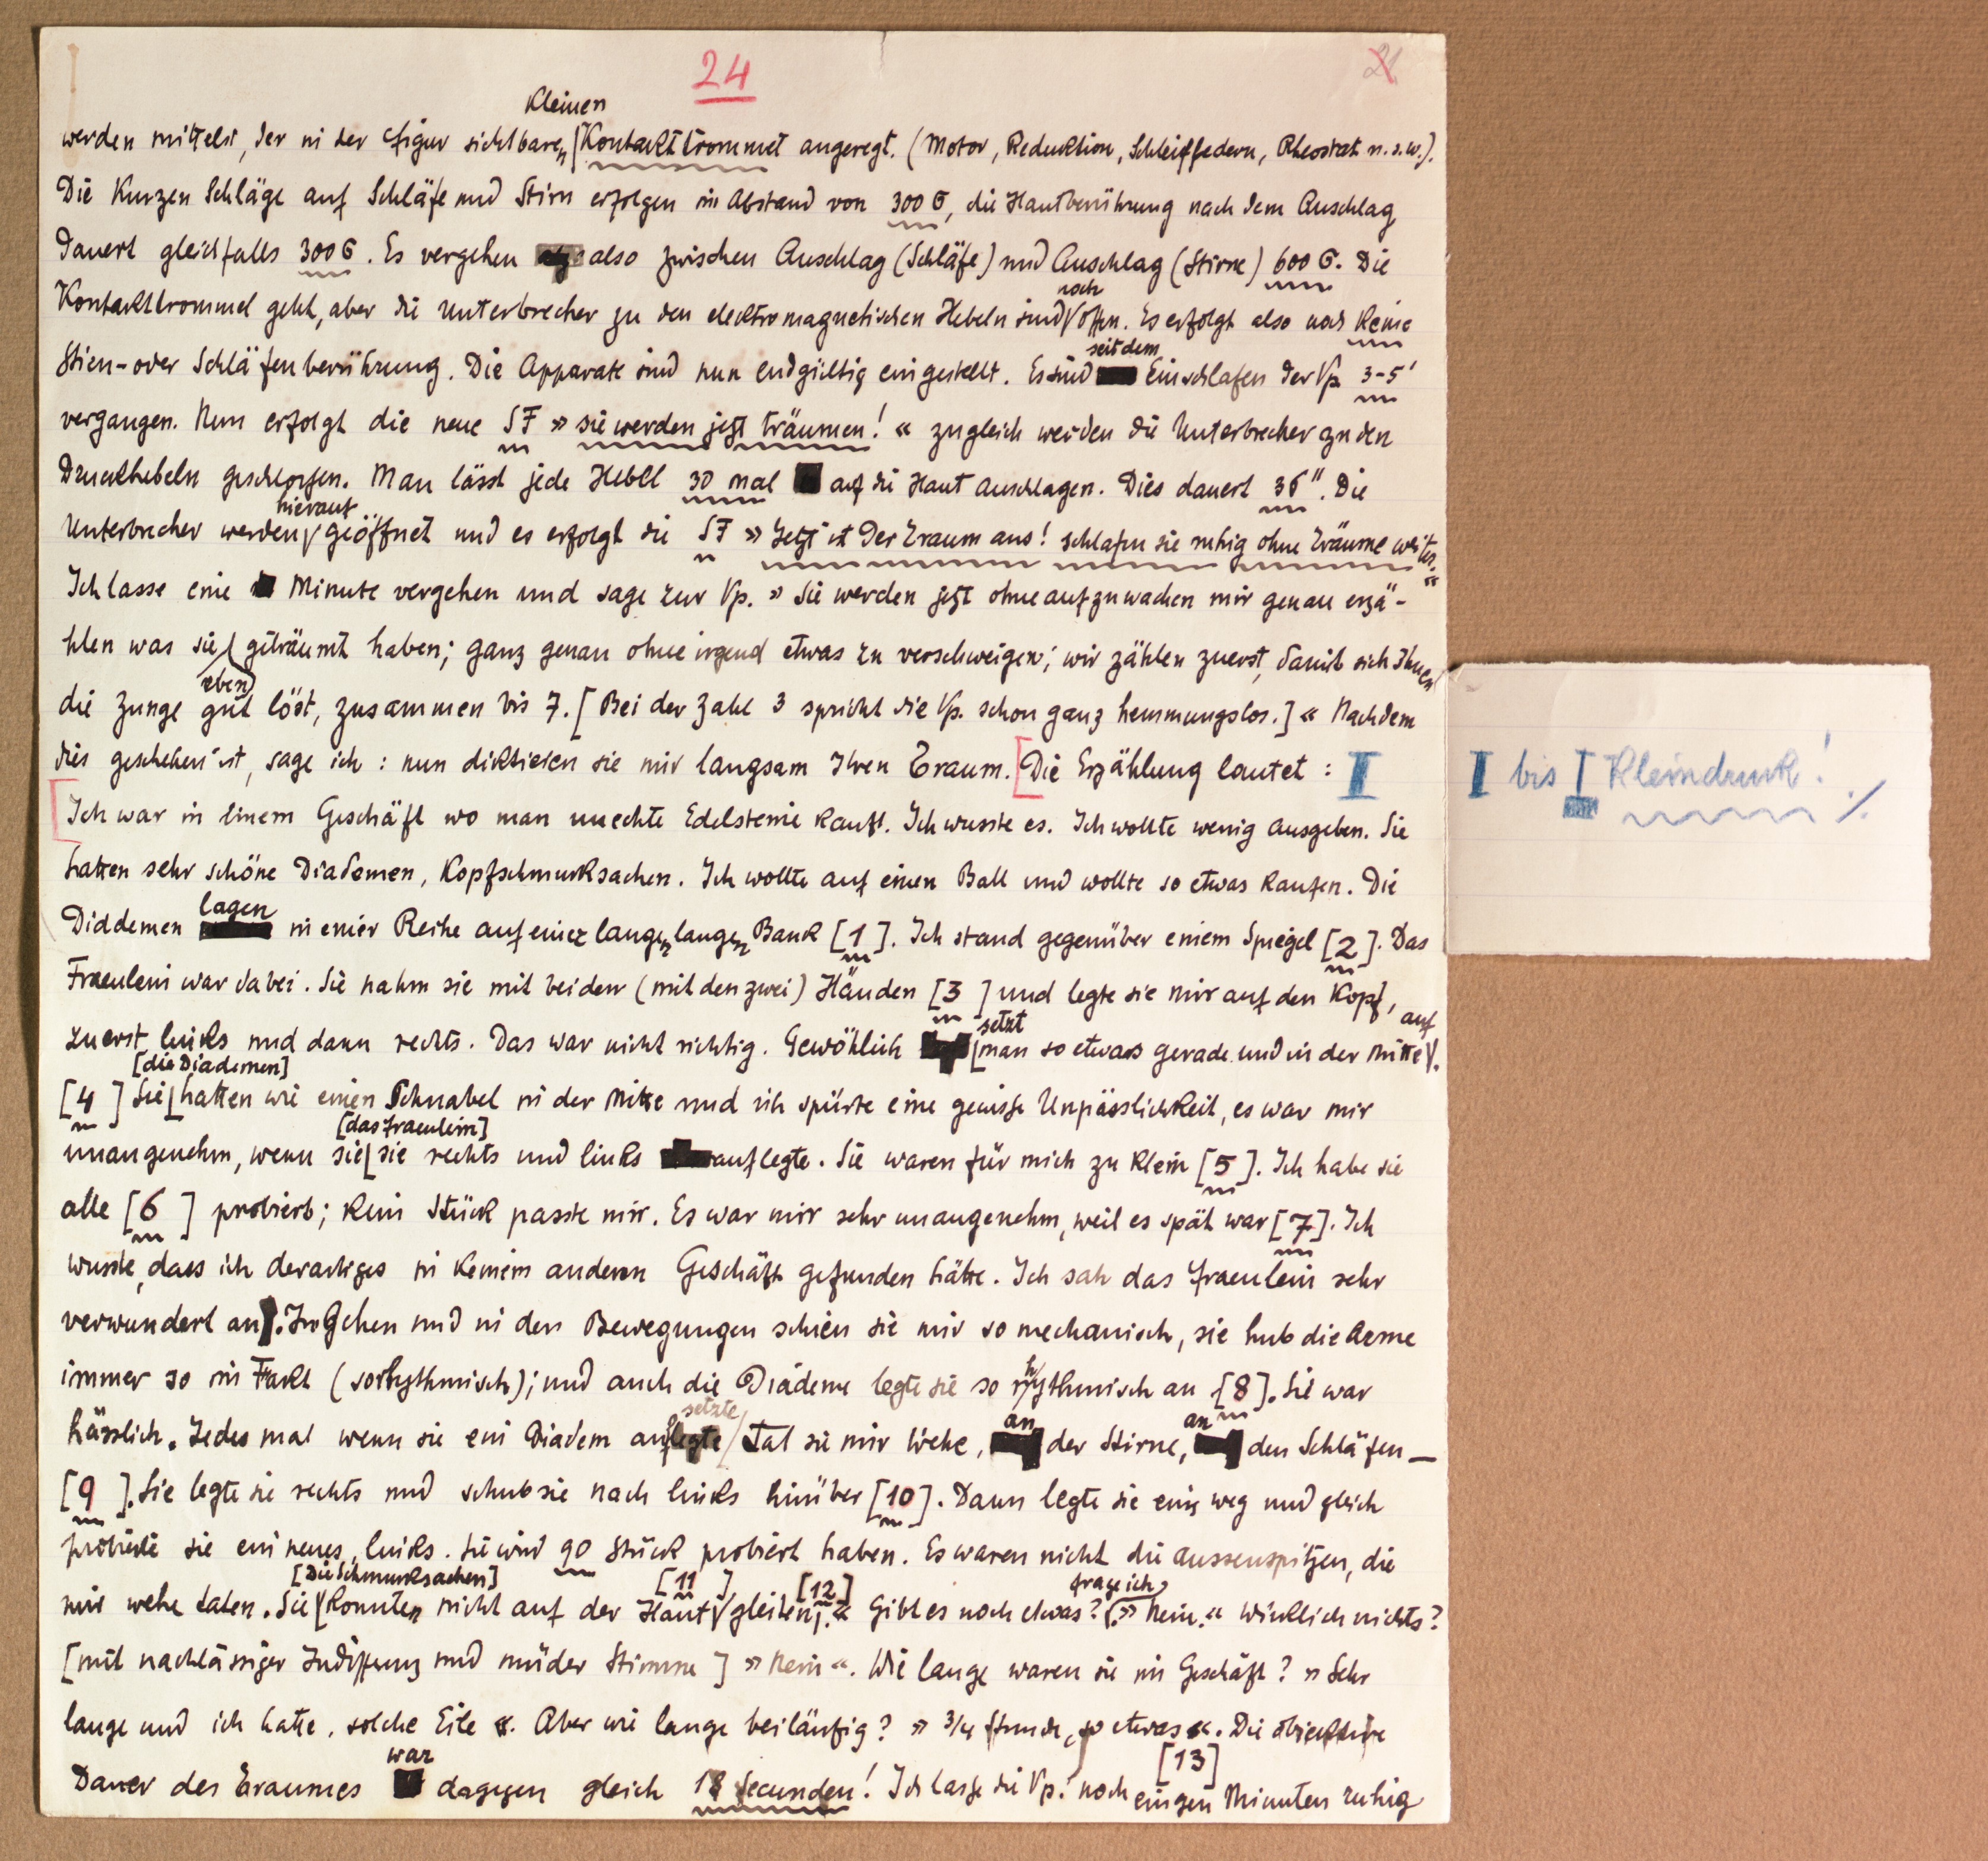 24
21
kleinen
werden mittelst, der in der Figur sichtbaren, Kontakttrommel angeregt. (Motor, Reduktion, Schleiffedern, Rheostat u.s.w.).
Die kurzen Schläge auf Schläfe und Stirn erfolgen im Abstand von 300 σ, die Hautberührung nach dem Anschlag
dauert gleichfalls 300 σ. Es vergehen also zwischen Anschlag (Schläfe) und Anschlag (Stirne) 600 σ. Die
noch
Kontakttrommel geht, aber die Unterbrecher zu den elektromagnetischen Hebeln sind offen. Es erfolgt also noch keine
seit dem
Stien- oder Schläfenberührung. Die Apparate sind nun endgültig eingestellt. Es sind Einschlafen der Vp. 3-5'
vergangen. Nun erfolgt die neue SF » sie werden jetzt träumen! « zugleich werden die Unterbrecher zu den
Druckhebeln geschlossen. Man lässt jede Hebel 30 mal auf die Haut anschlagen. Dies dauert 36". Die
hierauf
Unterbrecher werden geöffnet und es erfolgt die SF » Jetzt ist der Traum aus! schlafen sie ruhig ohne Träume weiter. «
Ich lasse eine Minute vergehen und sage zur Vp. » Sie werden jetzt ohne aufzuwachen mir genau erzä-
hlen was sie geträumt haben; ganz genau ohne irgend etwas zu verschweigen; wir zählen zuerst, damit sich Ihnen
eben
die Zunge gut löst, zusammen bis 7. [Bei der Zahl 3 spricht die Vp. schon ganz hemmungslos.] « Nachdem
dies geschehen ist, sage ich : nun diktieren sie mir langsam Ihren Traum. [Die Erzählung lautet : I
I bis I Kleindruck! ./.
[Ich war in einem Geschäft wo man unechte Edelsteine kauft. Ich wusste es. Ich wollte wenig ausgeben. Sie
hatten sehr schöne Diademen, Kopfschmucksachen. Ich wollte auf einen Ball und wollte so etwas kaufen. Die
lagen
Diddemen in einer Reihe auf einer langen, langen Bank [1]. Ich stand gegenüber einem Spiegel [2]. Das
Fraeulein war dabei. Sie nahm sie mit beiden (mit den zwei) Händen [3 ] und legte sie mir auf den Kopf,
setzt auf
zuerst links und dann rechts. Das war nicht richtig. Gewöhlich man so etwas gerade und in der Mitte.
[die Diademen]
[4 ] Sie hatten wie einen Schnabel in der Mitte und ich spürte eine gewisse Unpässlichkeit, es war mir
[das Fraeulein]
unangenehm, wenn sie sie rechts und links auflegte. Sie waren für mich zu klein [5]. Ich habe sie
alle [6 ] probiert; kein Stück passte mir. Es war mir sehr unangenehm, weil es spät war [7]. Ich
wusste, dass ich derartiges in keinem anderen Geschäft gefunden hätte. Ich sah das Fraeulein sehr
verwundert an. Im Gehen und in den Bewegungen schien sie mir so mechanisch, sie hub die Arme
immer so im Takt (so rhythmisch); und auch die Diademe legte sie so rhythmisch an [8]. Sie war
setzte an an
hässlich. Jedes mal wenn sie ein Diadem auflegte tat sie mir Wehe, der Stirne, den Schläfen _
[9 ]. Sie legte sie rechts und schub sie nach links hinüber [10]. Dann legte sie eins weg und gleich
probierte sie ein neues, links. Sie wird 90 Stück probiert haben. Es waren nicht die aussenspitzen, die
[Die Schmucksachen] [11 ] [12] frage ich
mir wehe taten. Sie konnten nicht auf der Haut gleiten. « Gibt es noch etwas? » Nein. « Wirklich nichts?
[mit nachlässiger Indifferenz und müder Stimme ] » Nein «. Wie lange waren sie im Geschäft? » Sehr
lange und ich hatte, solche Eile «. Aber wie lange beiläufig? » 3/4 Stunde, so etwas «. Die objektive
war [13]
Dauer des Traumes dagegen gleich 18 Secunden! Ich lasse die Vp. noch einigen Minuten ruhig